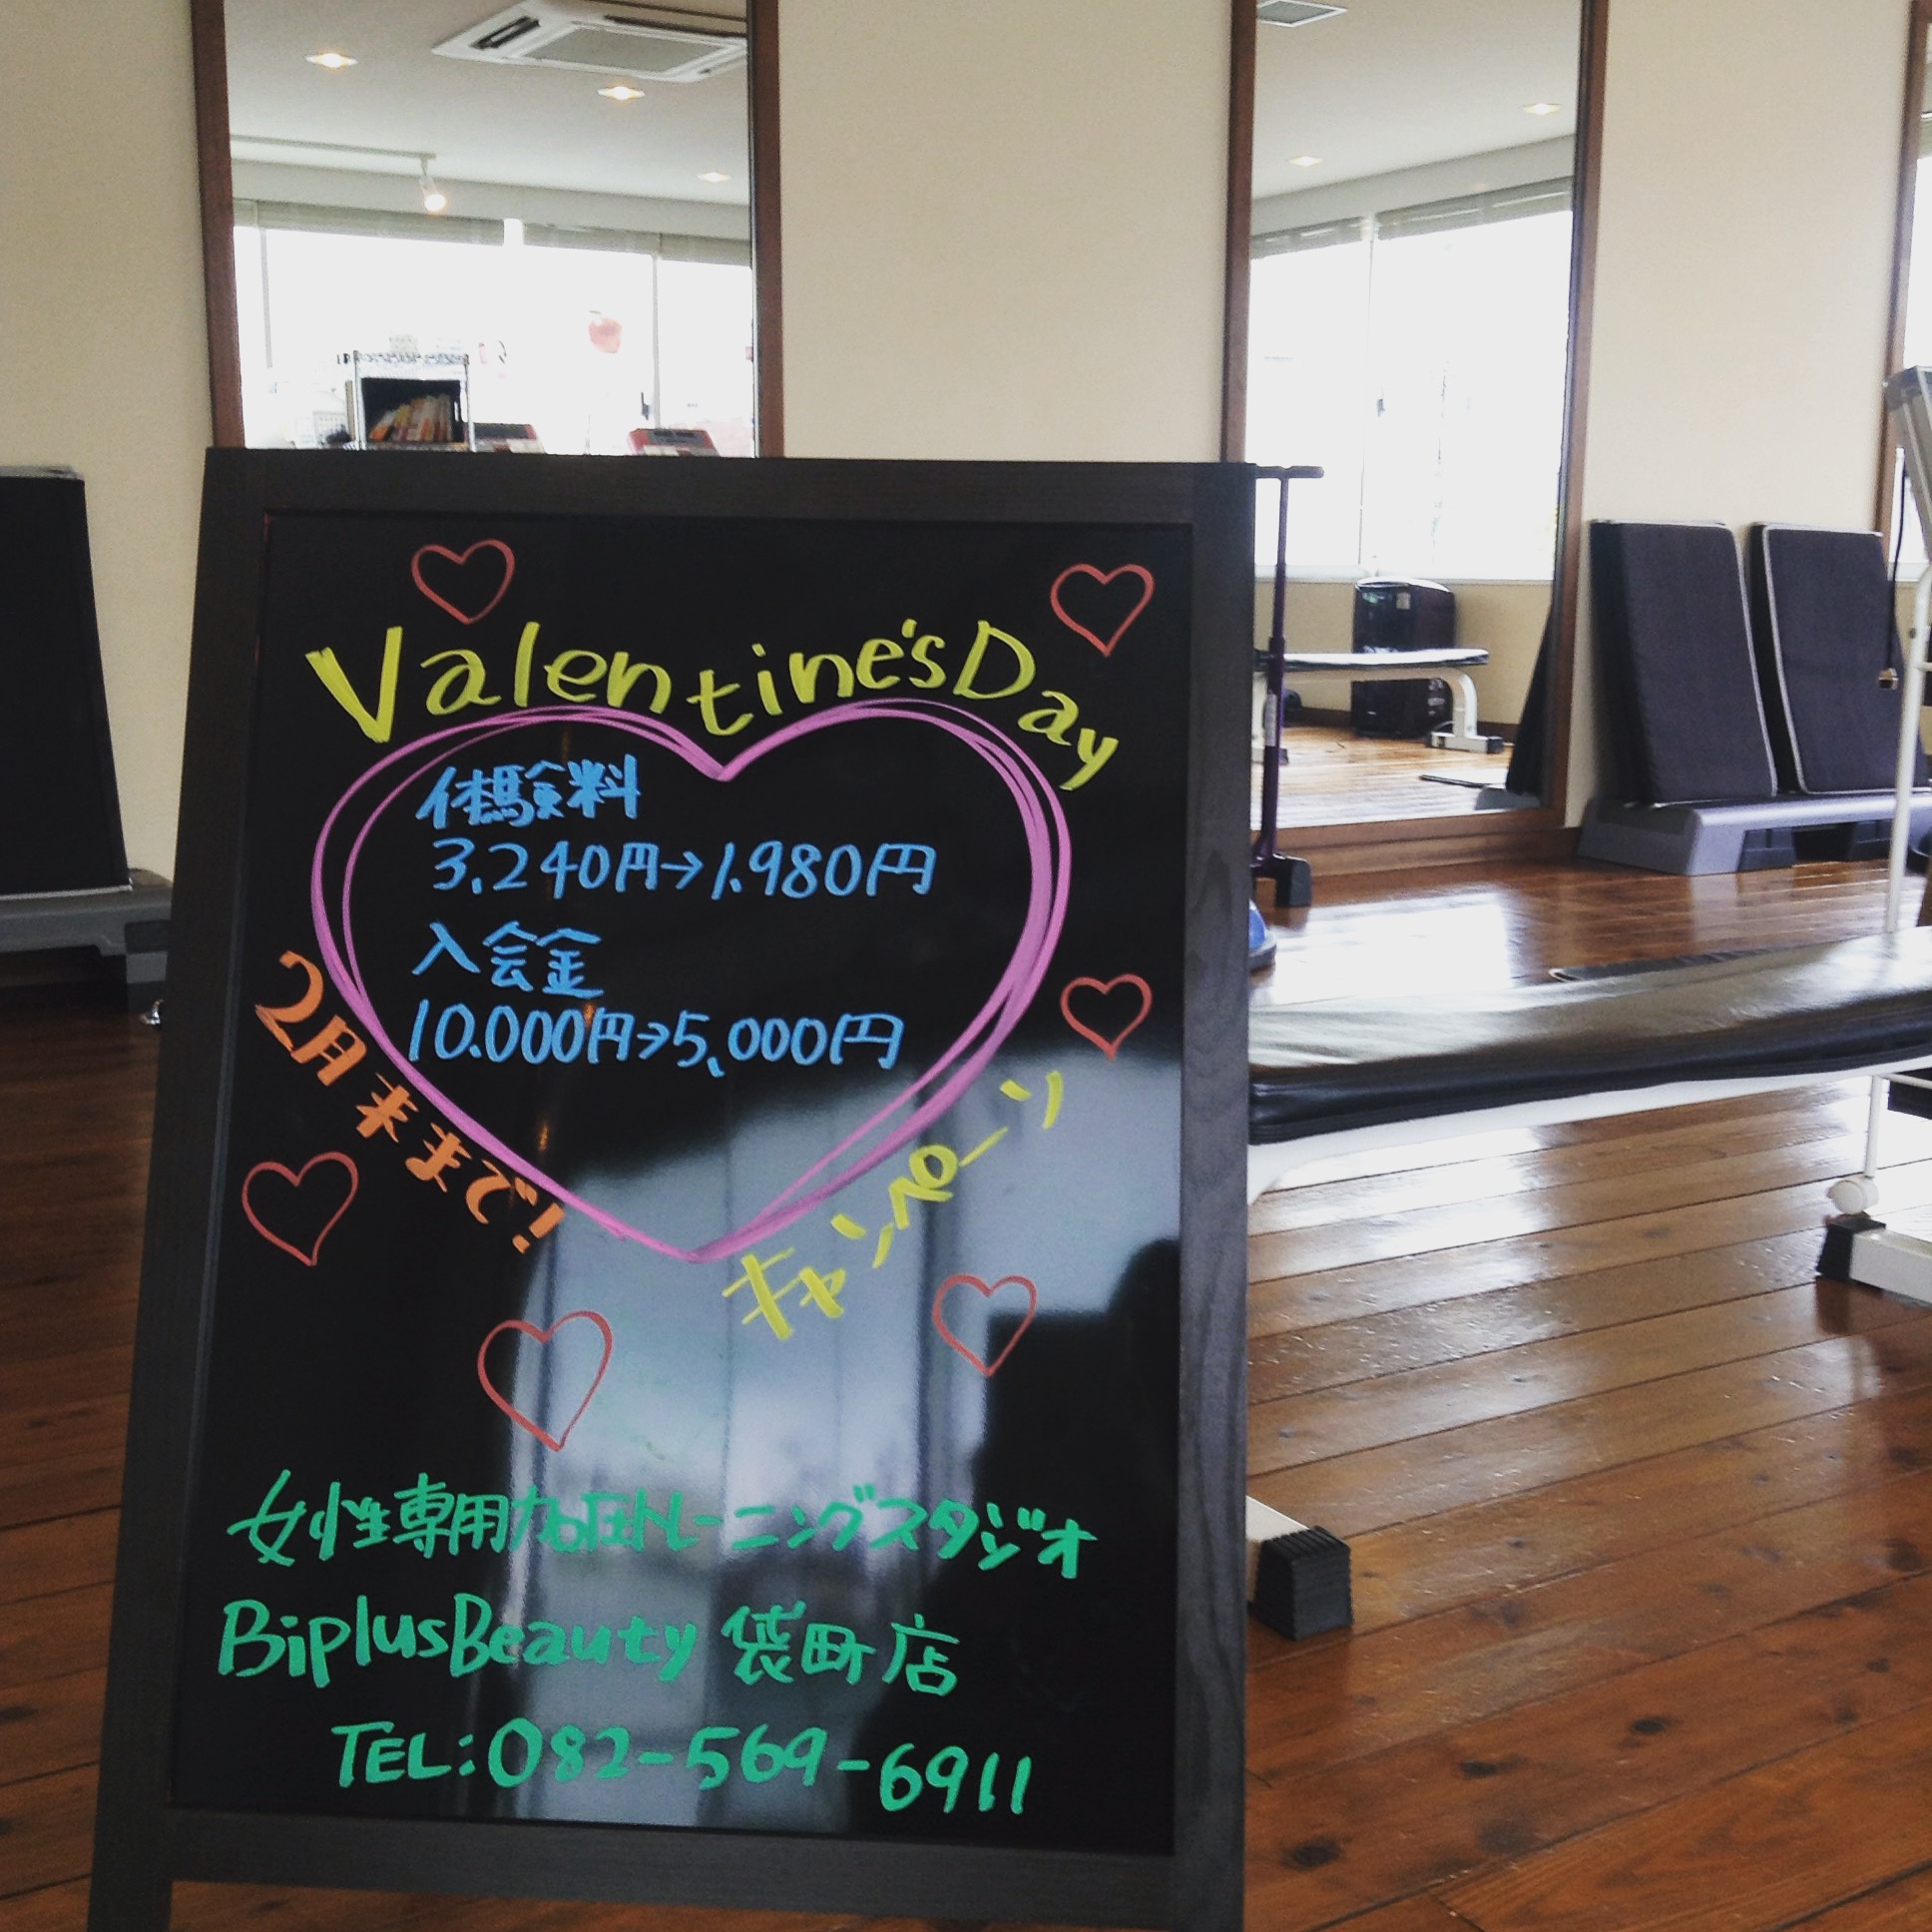 Valentine'sDay
体験料
3,240円→1.980円
入会金
10.000円→5,000円
2月末まで!
キャンペーン
女性専用加圧トレーニングスタジオ
BiplusBeauty 袋町店
TEL:082-569-6911